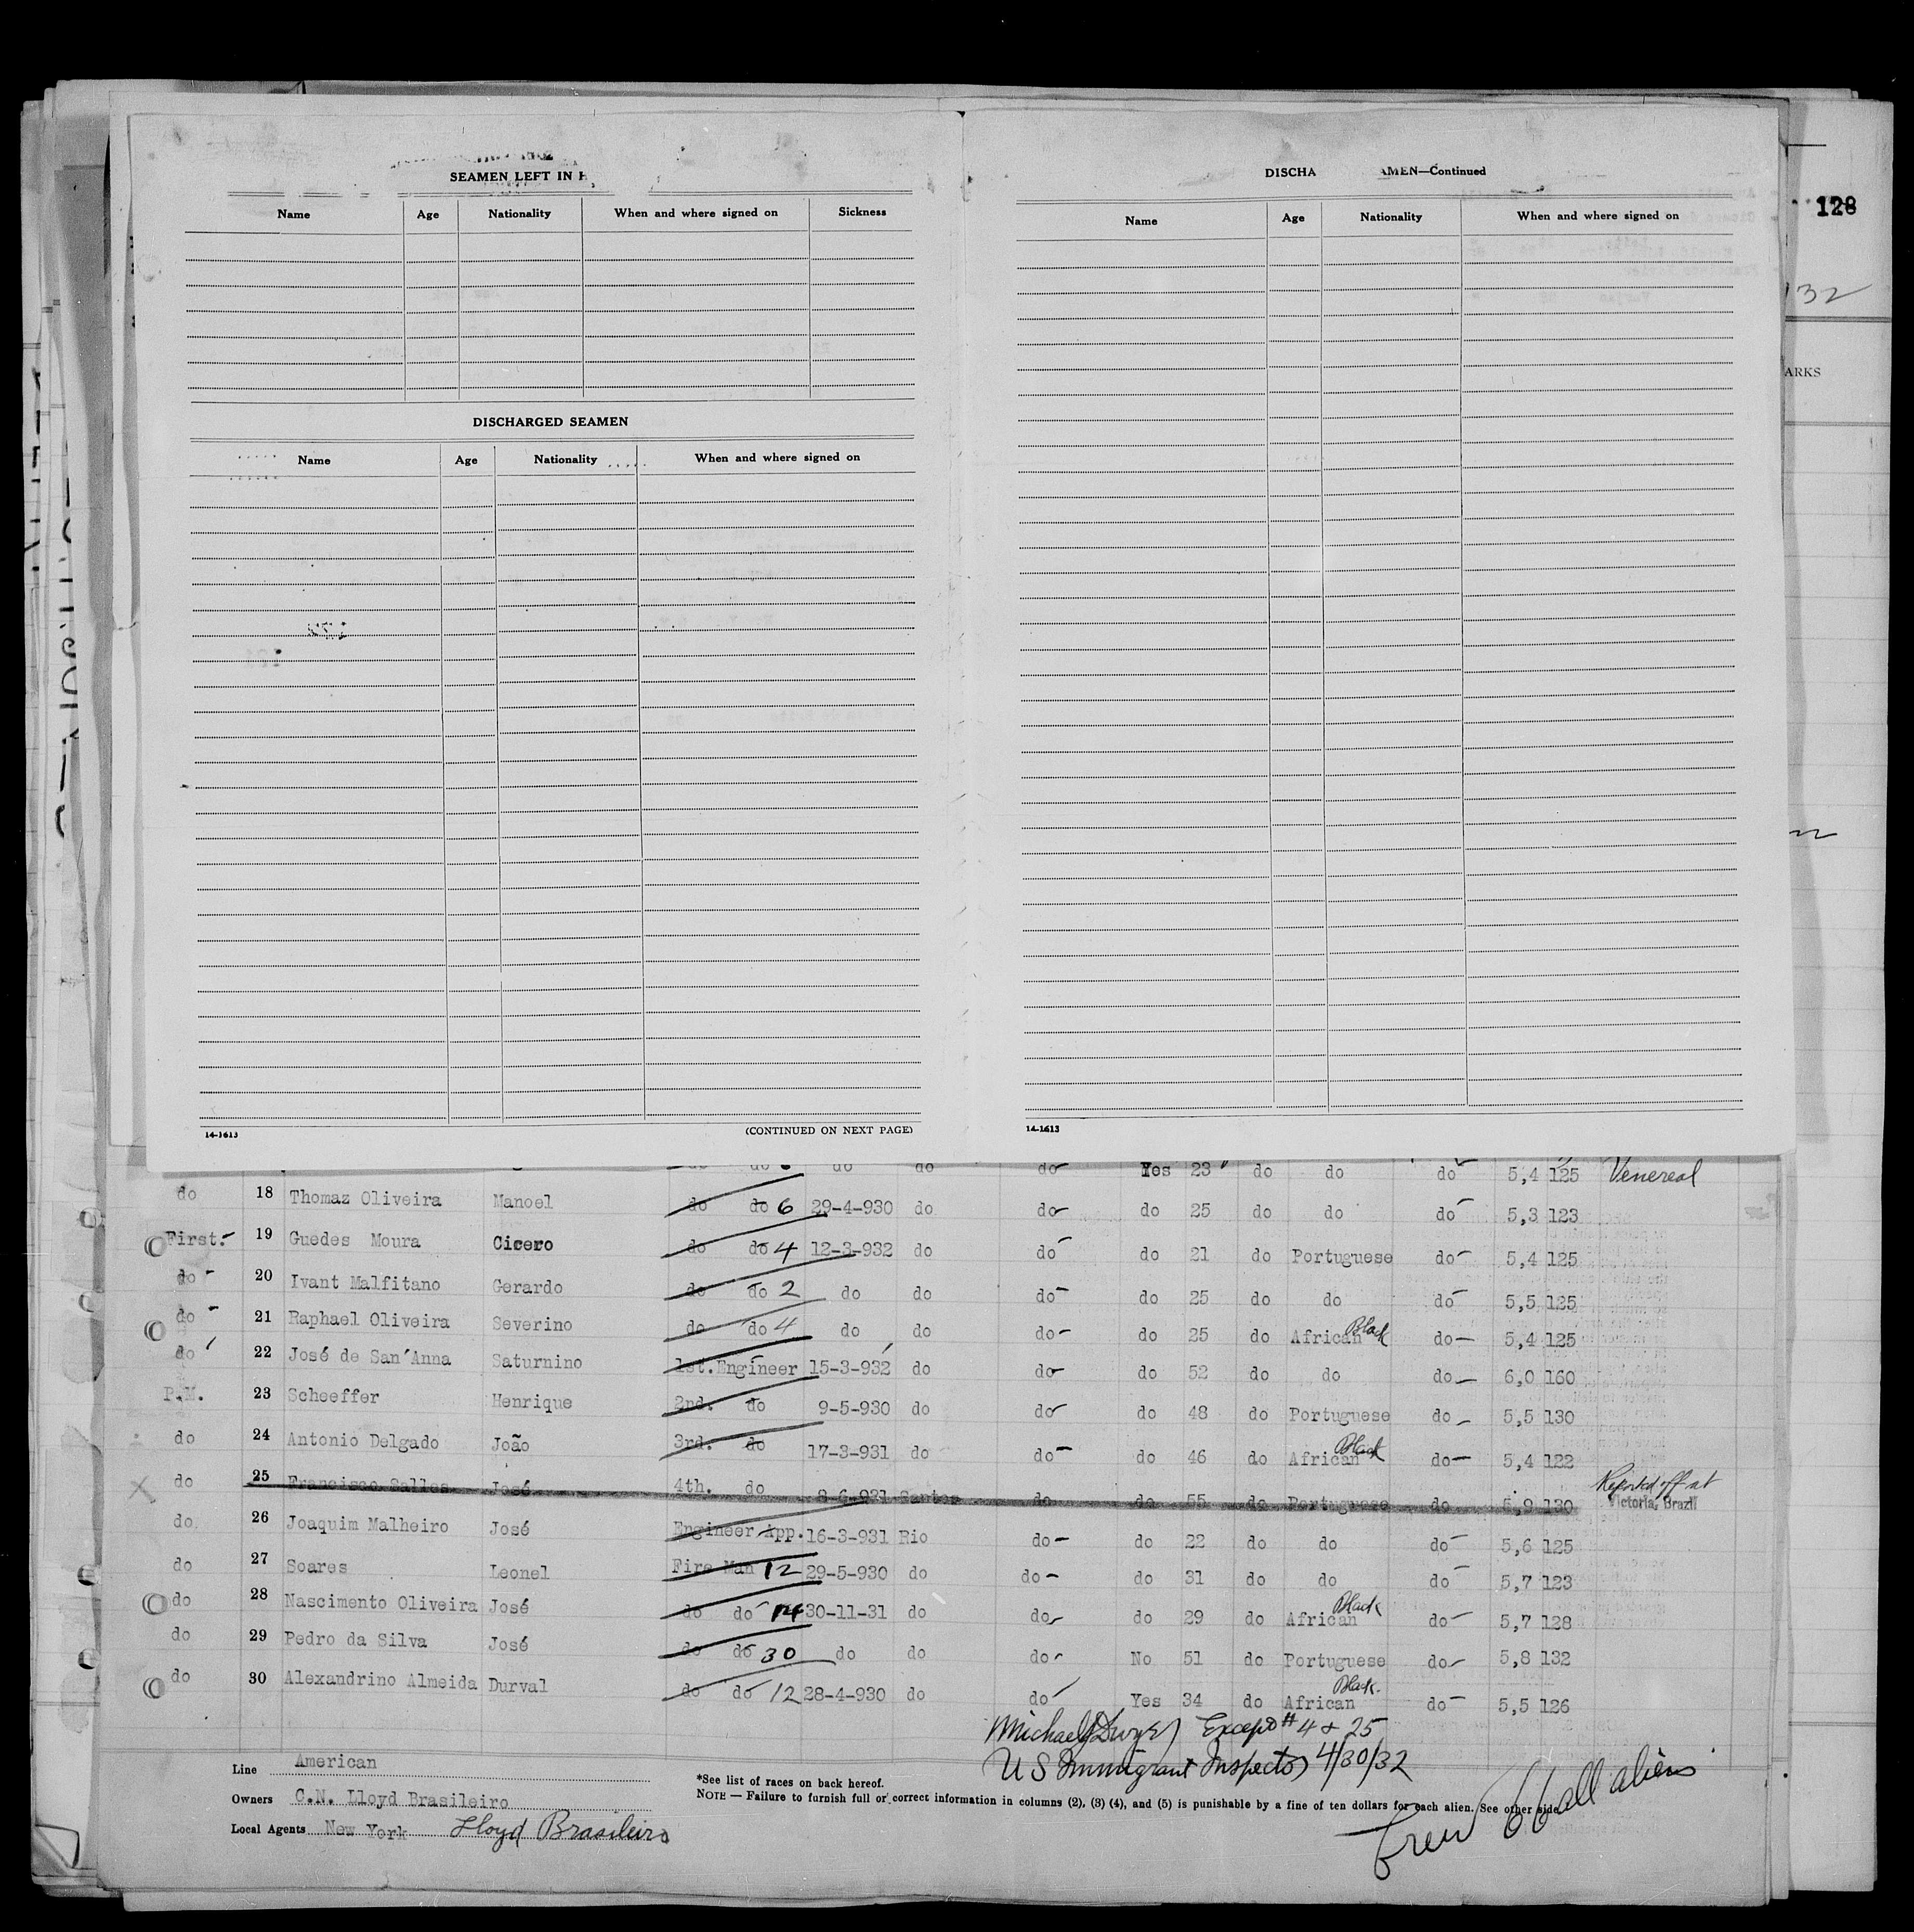 SEAMEN LEFT IN
Name Age Nationality When and where signed on Sickness
DISCHARGED SEAMEN
Name Age Nationality When and where signed on
14-1613 (CONTINUED ON NEXT PAGE)
DISCHA AMEN—Continued
Name Age Nationality When and where signed on
14-1613
128
132
ARKS
do do do do Yes 23 do do do 5,4 125 Venereal
do 18 Thomaz Oliveira Manoel do do 6 29-4-930 do do do 25 do do do 5,3 123
First. 19 Guedes Moura Cicero do do 4 12-3-932 do do do 21 do Portuguese do 5,4 125
do 20 Ivant Malfitano Gerardo do do 2 do do do do 25 do do do 5,5 125
do 21 Raphael Oliveira Severino do do 4 do do do do 25 do African Black do 5,4 125
do 22 José de San'Anna Saturnino 1st. Engineer 15-3-932 do do do 52 do do do 6,0 160
P.M. 23 Scheeffer Henrique 2nd. do 9-5-930 do do do 48 do Portuguese do 5,5 130
do 24 Antonio Delgado João 3rd. do 17-3-931 do do do 46 do African Black do 5,4 122
do 25 Francisco Salles José 4th. do 8-6-931 Santos do do 55 do Portuguese do 5,9 130 Reported off at Victoria, Brazil
do 26 Joaquim Malheiro José Engineer App. 16-3-931 Rio do do 22 do do do 5,6 125
do 27 Soares Leonel Fire Man 12 29-5-930 do do do 31 do do do 5,7 123
do 28 Nascimento Oliveira José do do 14 30-11-31 do do do 29 do African Black do 5,7 128
do 29 Pedro da Silva José do do 30 do do do No 51 do Portuguese do 5,8 132
do 30 Alexandrino Almeida Durval do do 12 28-4-930 do do Yes 34 do African Black do 5,5 126
Michael J Dwyer Except #4 & 25
US Immigrant Inspector 4/30/32
Line American
Owners C.N. Lloyd Brasileiro
Local Agents New York Lloyd Brasileiro
*See list of races on back hereof.
NOTE — Failure to furnish full or correct information in columns (2), (3) (4), and (5) is punishable by a fine of ten dollars for each alien. See other side.
Crew 66 all aliens